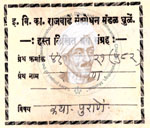 इ. वि. का. राजवाडे संशोधन मंडळ धुळें.
हस्त लिखित ग्रंथ संग्रह
ग्रंथ क्रमांक
ग्रंथ नाम
विषय कथा-पुराणे